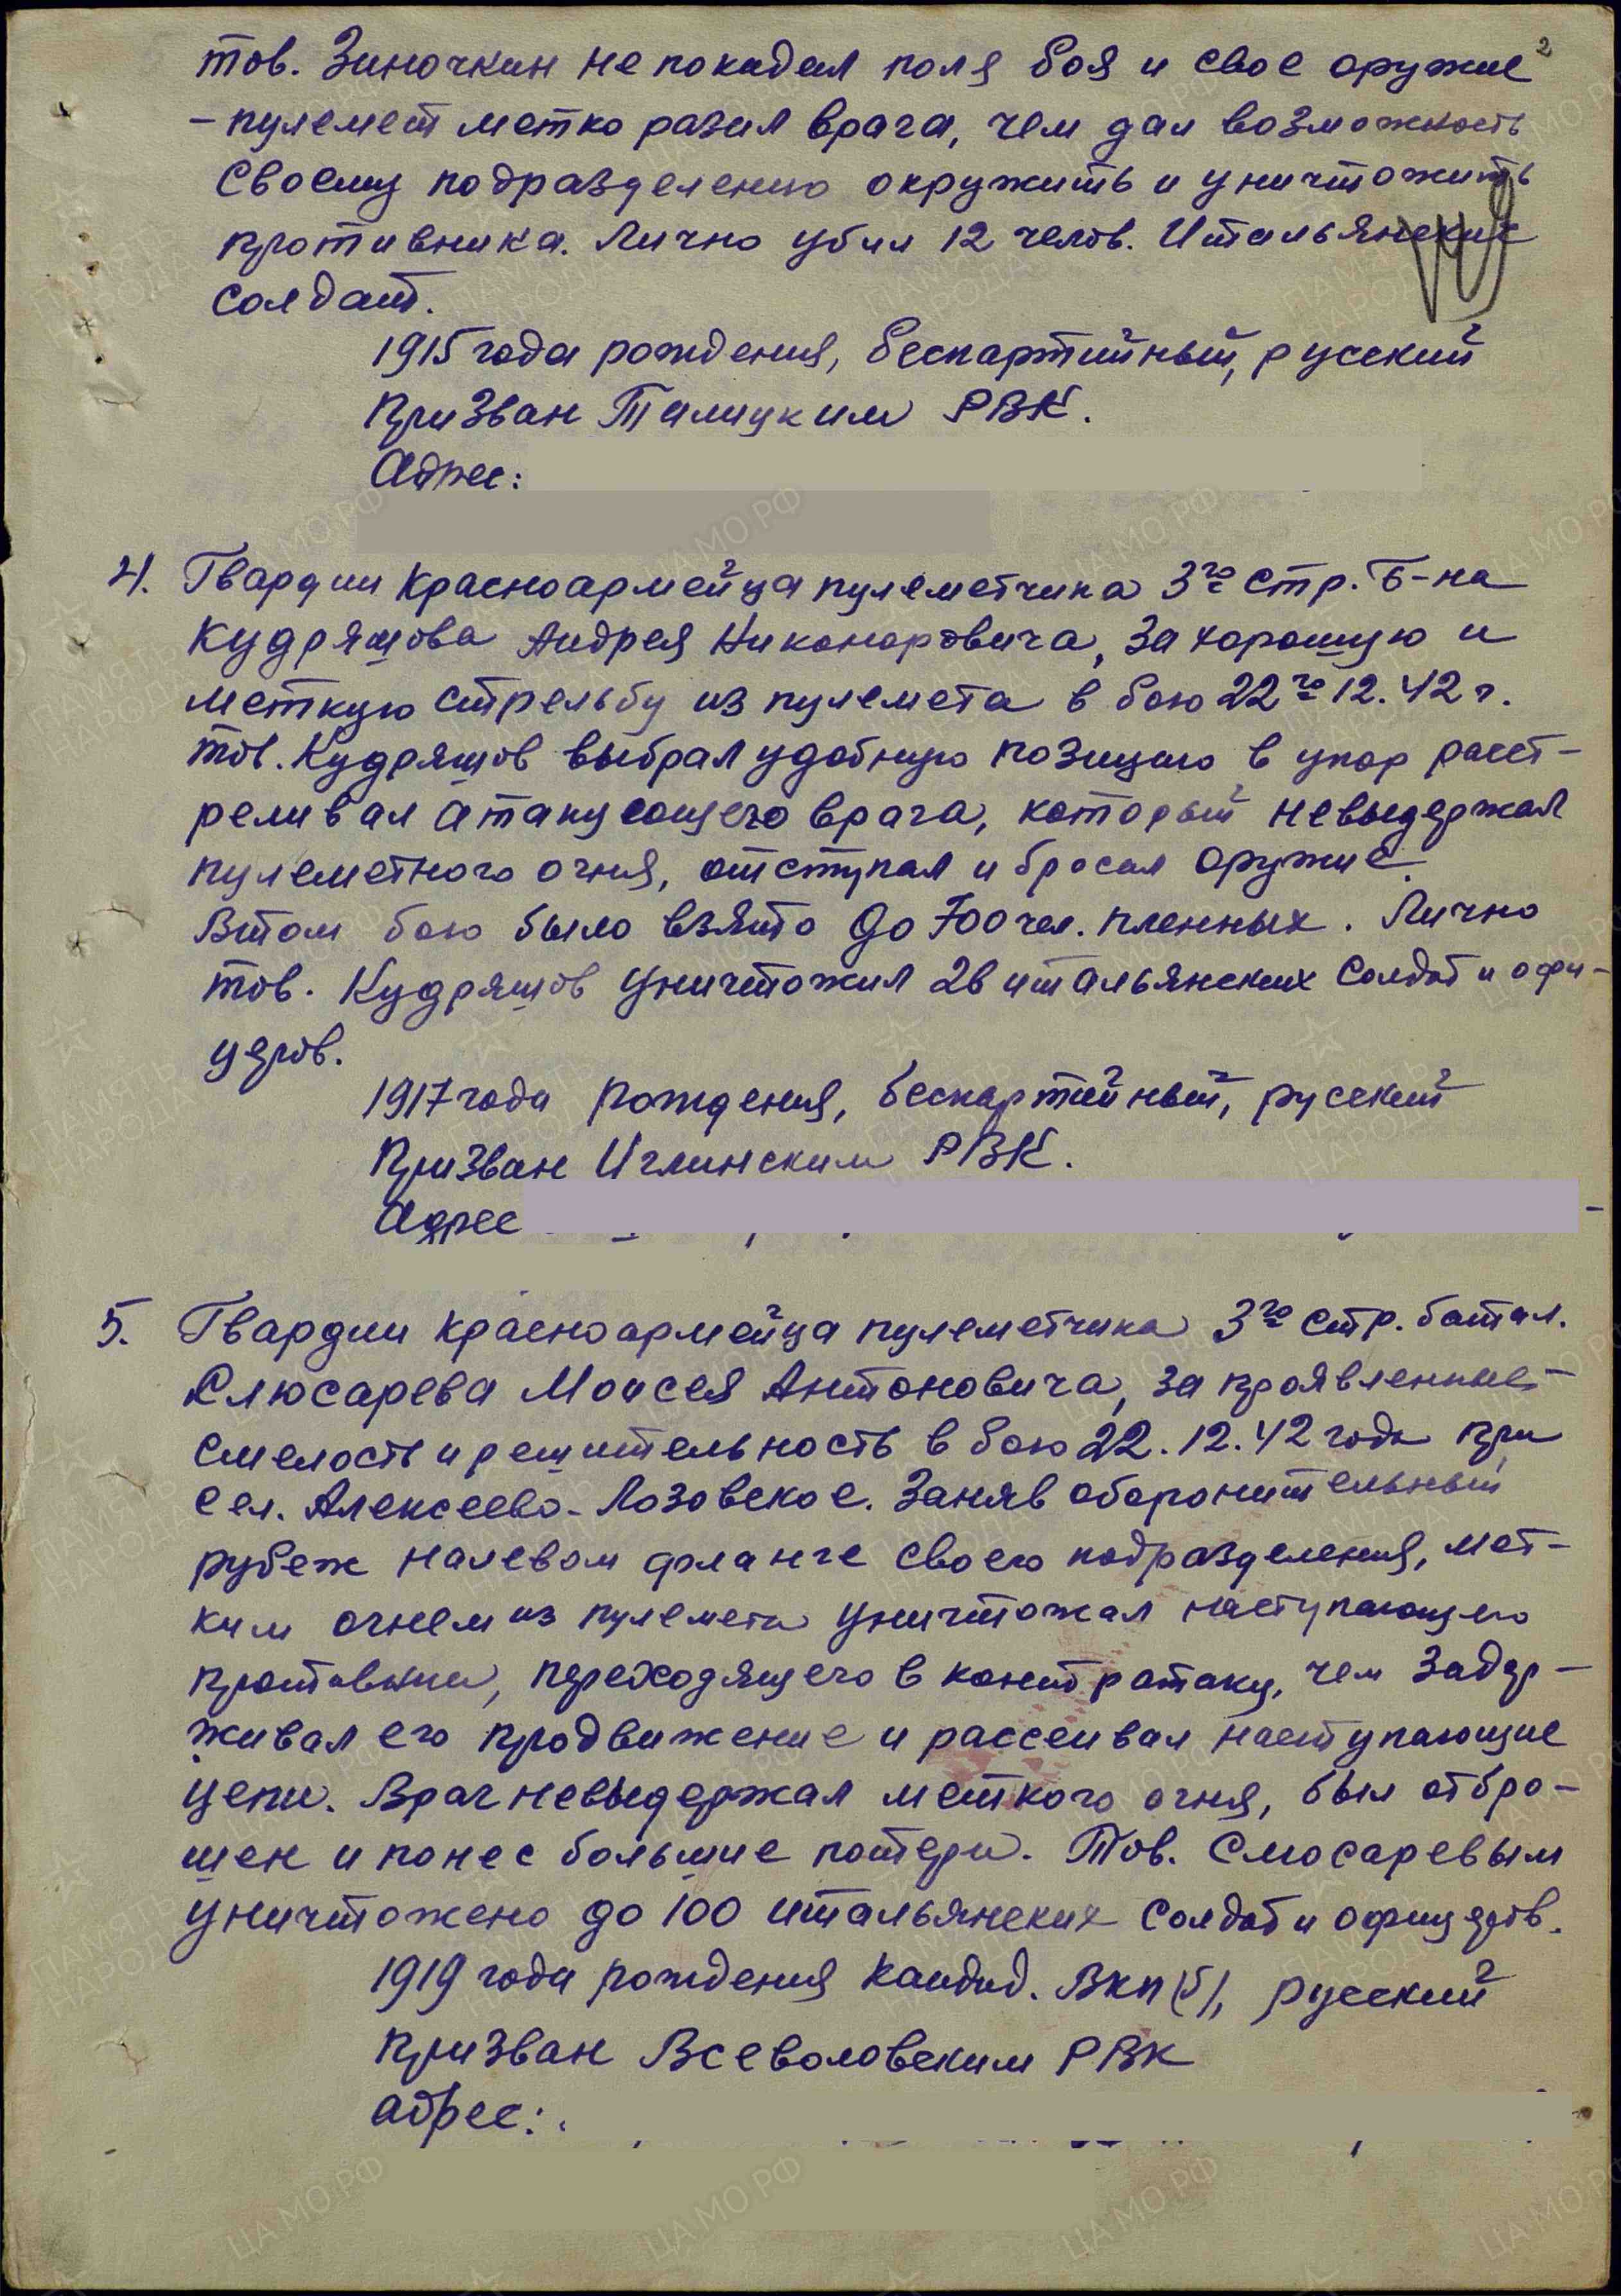 2
тов. Зиночкин не покидал поля боя и свое оружие
- пулемет метко разил врага, чем дал возможность
своему подразделению окружить и уничтожить
противника. Лично убил 12 челов. Итальянских
солдат.
1915 года рождения, беспартийный, русский
Призван Талицким РВК.
Адрес:
4. Гвардии красноармейца пулеметчика 3го стр. б-на
Кудряшова Андрея Никаноровича, за хорошую и
меткую стрельбу из пулемета в бою 22го 12.42 г.
тов. Кудряшов выбрал удобную позицию в упор расст-
реливал атакующего врага, который невыдержал
пулеметного огня, отступал и бросал оружие.
Втом бою было взято до 700 чел. пленных. Лично
тов. Кудряшов уничтожил 26 итальянских солдат и офи-
церов.
1917 года рождения, беспартийный, русский
Призван Иглинским РВК.
Адрес
5. Гвардии красноармейца пулеметчика 3го стр. батал.
Слюсарева Моисея Антоновича, за проявленные
смелость и решительность в бою 22.12.42 года при
сел. Алексеево-Лозовское. Заняв оборонительный
рубеж налевом фланге своего подразделения, мет-
ким огнем из пулемета уничтожал наступающего
противника, переходящего в контратаку, чем задер-
живал его продвижение и рассеивал наступающие
цепи. Враг невыдержал меткого огня, был отбро-
шен и понес большие потери. Тов. Слюсаревым
уничтожено до 100 итальянских солдат и офицеров.
1919 года рождения кандид. ВКП(б), русский
Призван Всеволовским РВК
адрес:
ЦА МО РФ
ПАМЯТЬ
НАРОДА